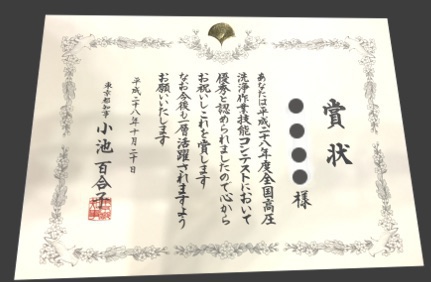 賞状
●●●●様
あなたは平成二十八年度全国高圧
洗浄作業技能コンテストにおいて
優秀と認められましたので心から
お祝いしこれを賞します
なお今後も一層活躍されますよう
お願いいたします
平成二十八年十月二十日
東京都知事 小池百合子